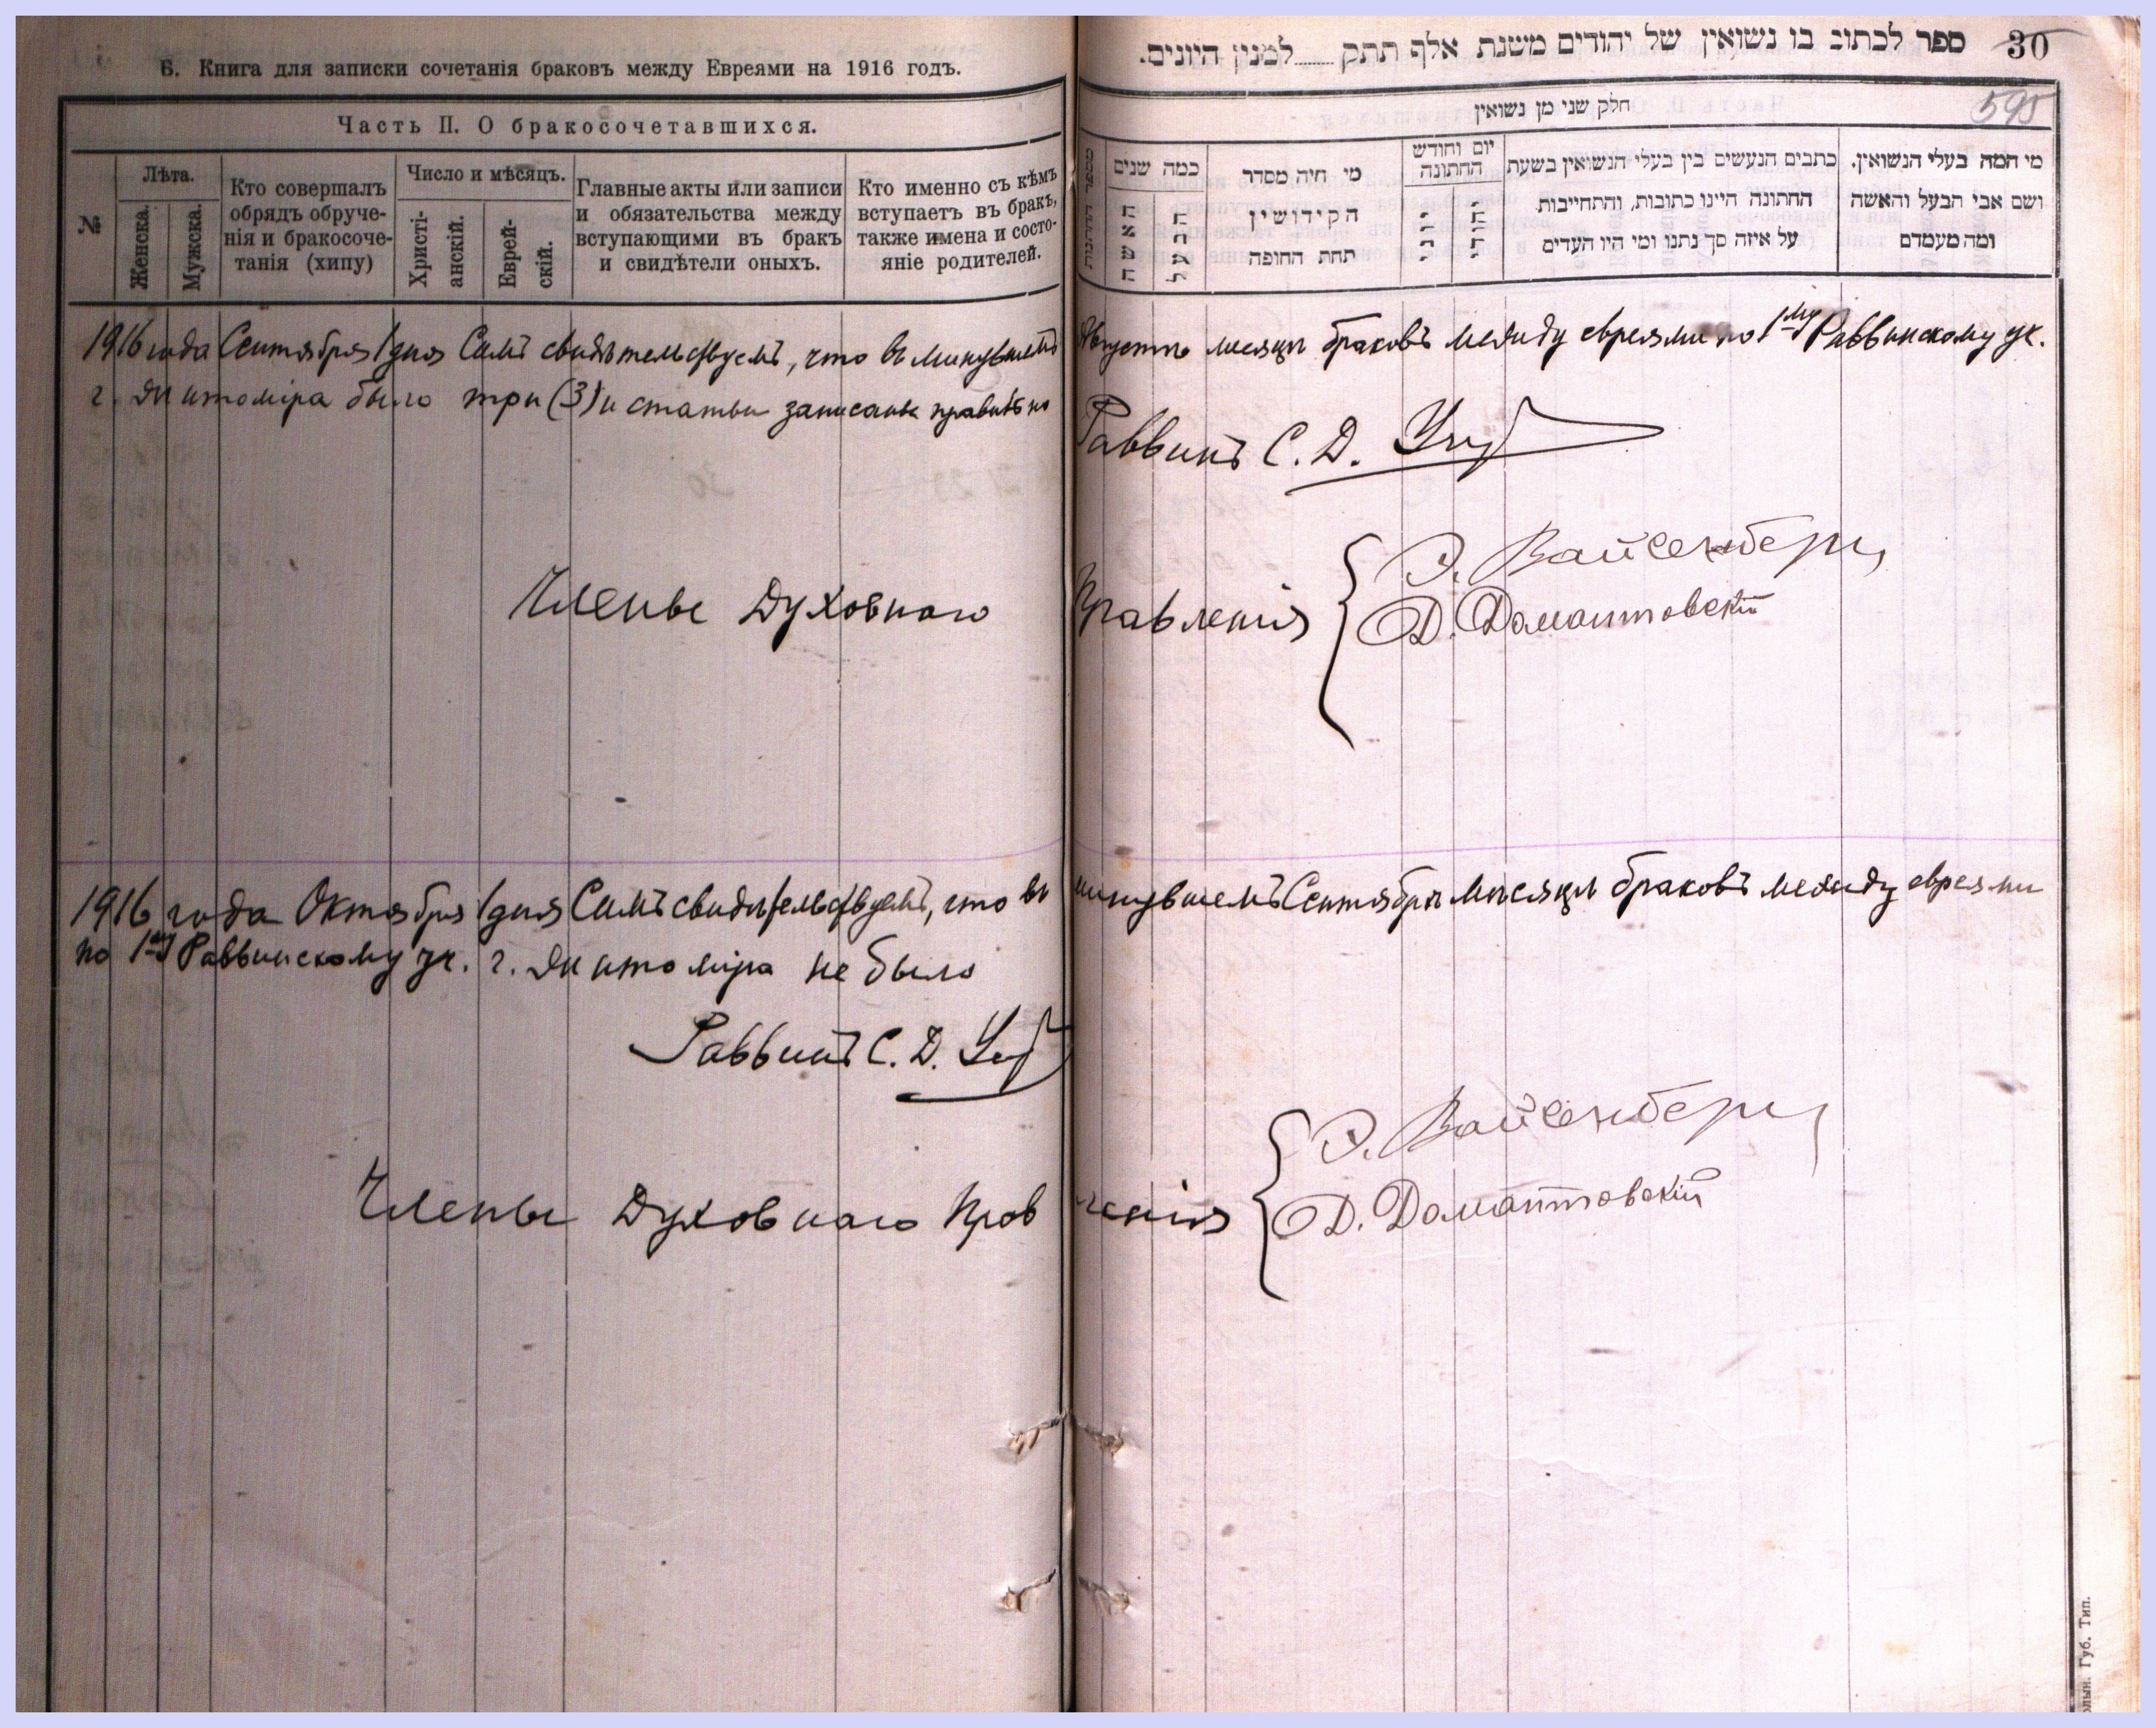 Б. Книга для записки сочетанія браковъ между Евреями на 1916 годъ.
Часть II. О бракосочетавшихся.
№
Лѣта.
Женска.
Мужска.
Кто совершалъ
обрядъ обруче-
нія и бракосоче-
танія (хипу)
Число и мѣсяцъ.
Христі-
анскій.
Еврей-
скій.
Главные акты или записи
и обязательства между
вступающими въ бракъ
и свидѣтели оныхъ.
Кто именно съ кѣмъ
вступаетъ въ бракъ,
также имена и состо-
яніе родителей.
30 ספר לכתוב בו נשואין של יהודים משנת אלף תתק......למנין היונים.
595
חלק שני מן נשואין
כמה שנים
האשה
הבעל
מי היה מסדר
הקידושין
תחת החופה
יום וחודש
החתונה
יוני
יהודי
כתבים הנעשים בין בעלי הנשואין בשעת
החתונה היינו כתובות, והתחייבות
על איזה סך נתנו ומי היו העדים
מי המה בעלי הנשואין.
ושם אבי הבעל והאשה
ומה מעמדם
1916 года Сентября 1 дня Симъ свидѣтельствуемъ, что въ минувшемъ Августѣ месяцѣ браковъ между евреями по 1му Раввинскому уч.
г. Житоміра было три (3) и статьи записаны правильно
Раввинъ С. Д.
Члены Духовнаго Правленія
Э. Вайсенбергъ
Д. Домонтовскій
1916 года Октября 1 дня Симъ свидѣтельствуемъ, что въ минувшемъ Сентябрѣ мѣсяцѣ браковъ между евреями
по 1му Раввинскому уч. г. Житоміра не было
Раввинъ С. Д.
Члены Духовнаго Правленія
Э. Вайсенбергъ
Д. Домонтовскій
Губ. Тип.